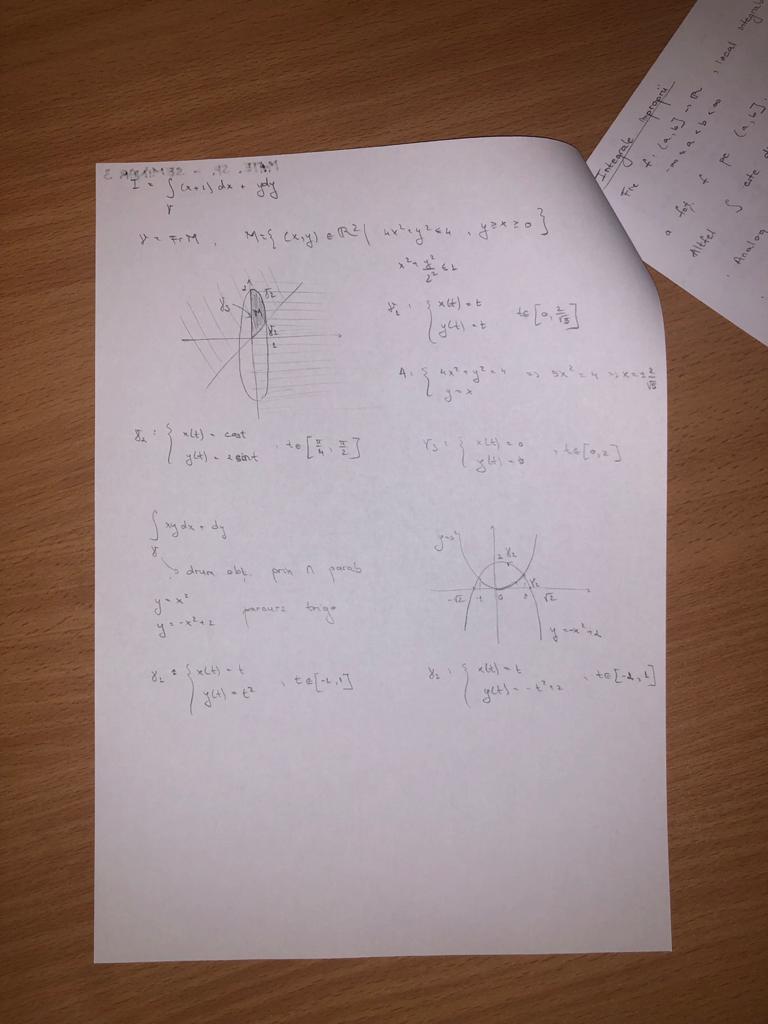 I = ∫ (x+1) dx + y dy
γ
γ = Fr M, M = { (x,y) ∈ ℝ² | 4x² + y² ≤ 4, y ≥ x ≥ 0 }
x² + y²/2² ≤ 1
γ₁ : { x(t) = t
y(t) = t
t ∈ [0, 2/√5]
γ₃ γ₂
M
γ₁
1
A : { 4x² + y² = 4 => 5x² = 4 => x = ± 2/√5
y = x
γ₂ : { x(t) = cos t
y(t) = 2 sin t
, t ∈ [π/4, π/2]
γ₃ : { x(t) = 0
, t ∈ [0, 2]
∫ xy dx + dy
γ
drum obt. prin ∩ parab
y = x²
y = -x² + 2
parcurs trigo
y = x²
2 γ₂
γ₁
-√2 -1 0 1 √2
y = -x² + 2
γ₁ : { x(t) = t
y(t) = t²
, t ∈ [-1, 1]
γ₂ : { x(t) = t
y(t) = -t² + 2
, t ∈ [-1, 1]
Integrale improprii
Fie f: (a, b] → ℝ, local integrab
-∞ ≤ a < b < ∞
a fct. f pe (a, b].
Altfel ∫ este di
Analog